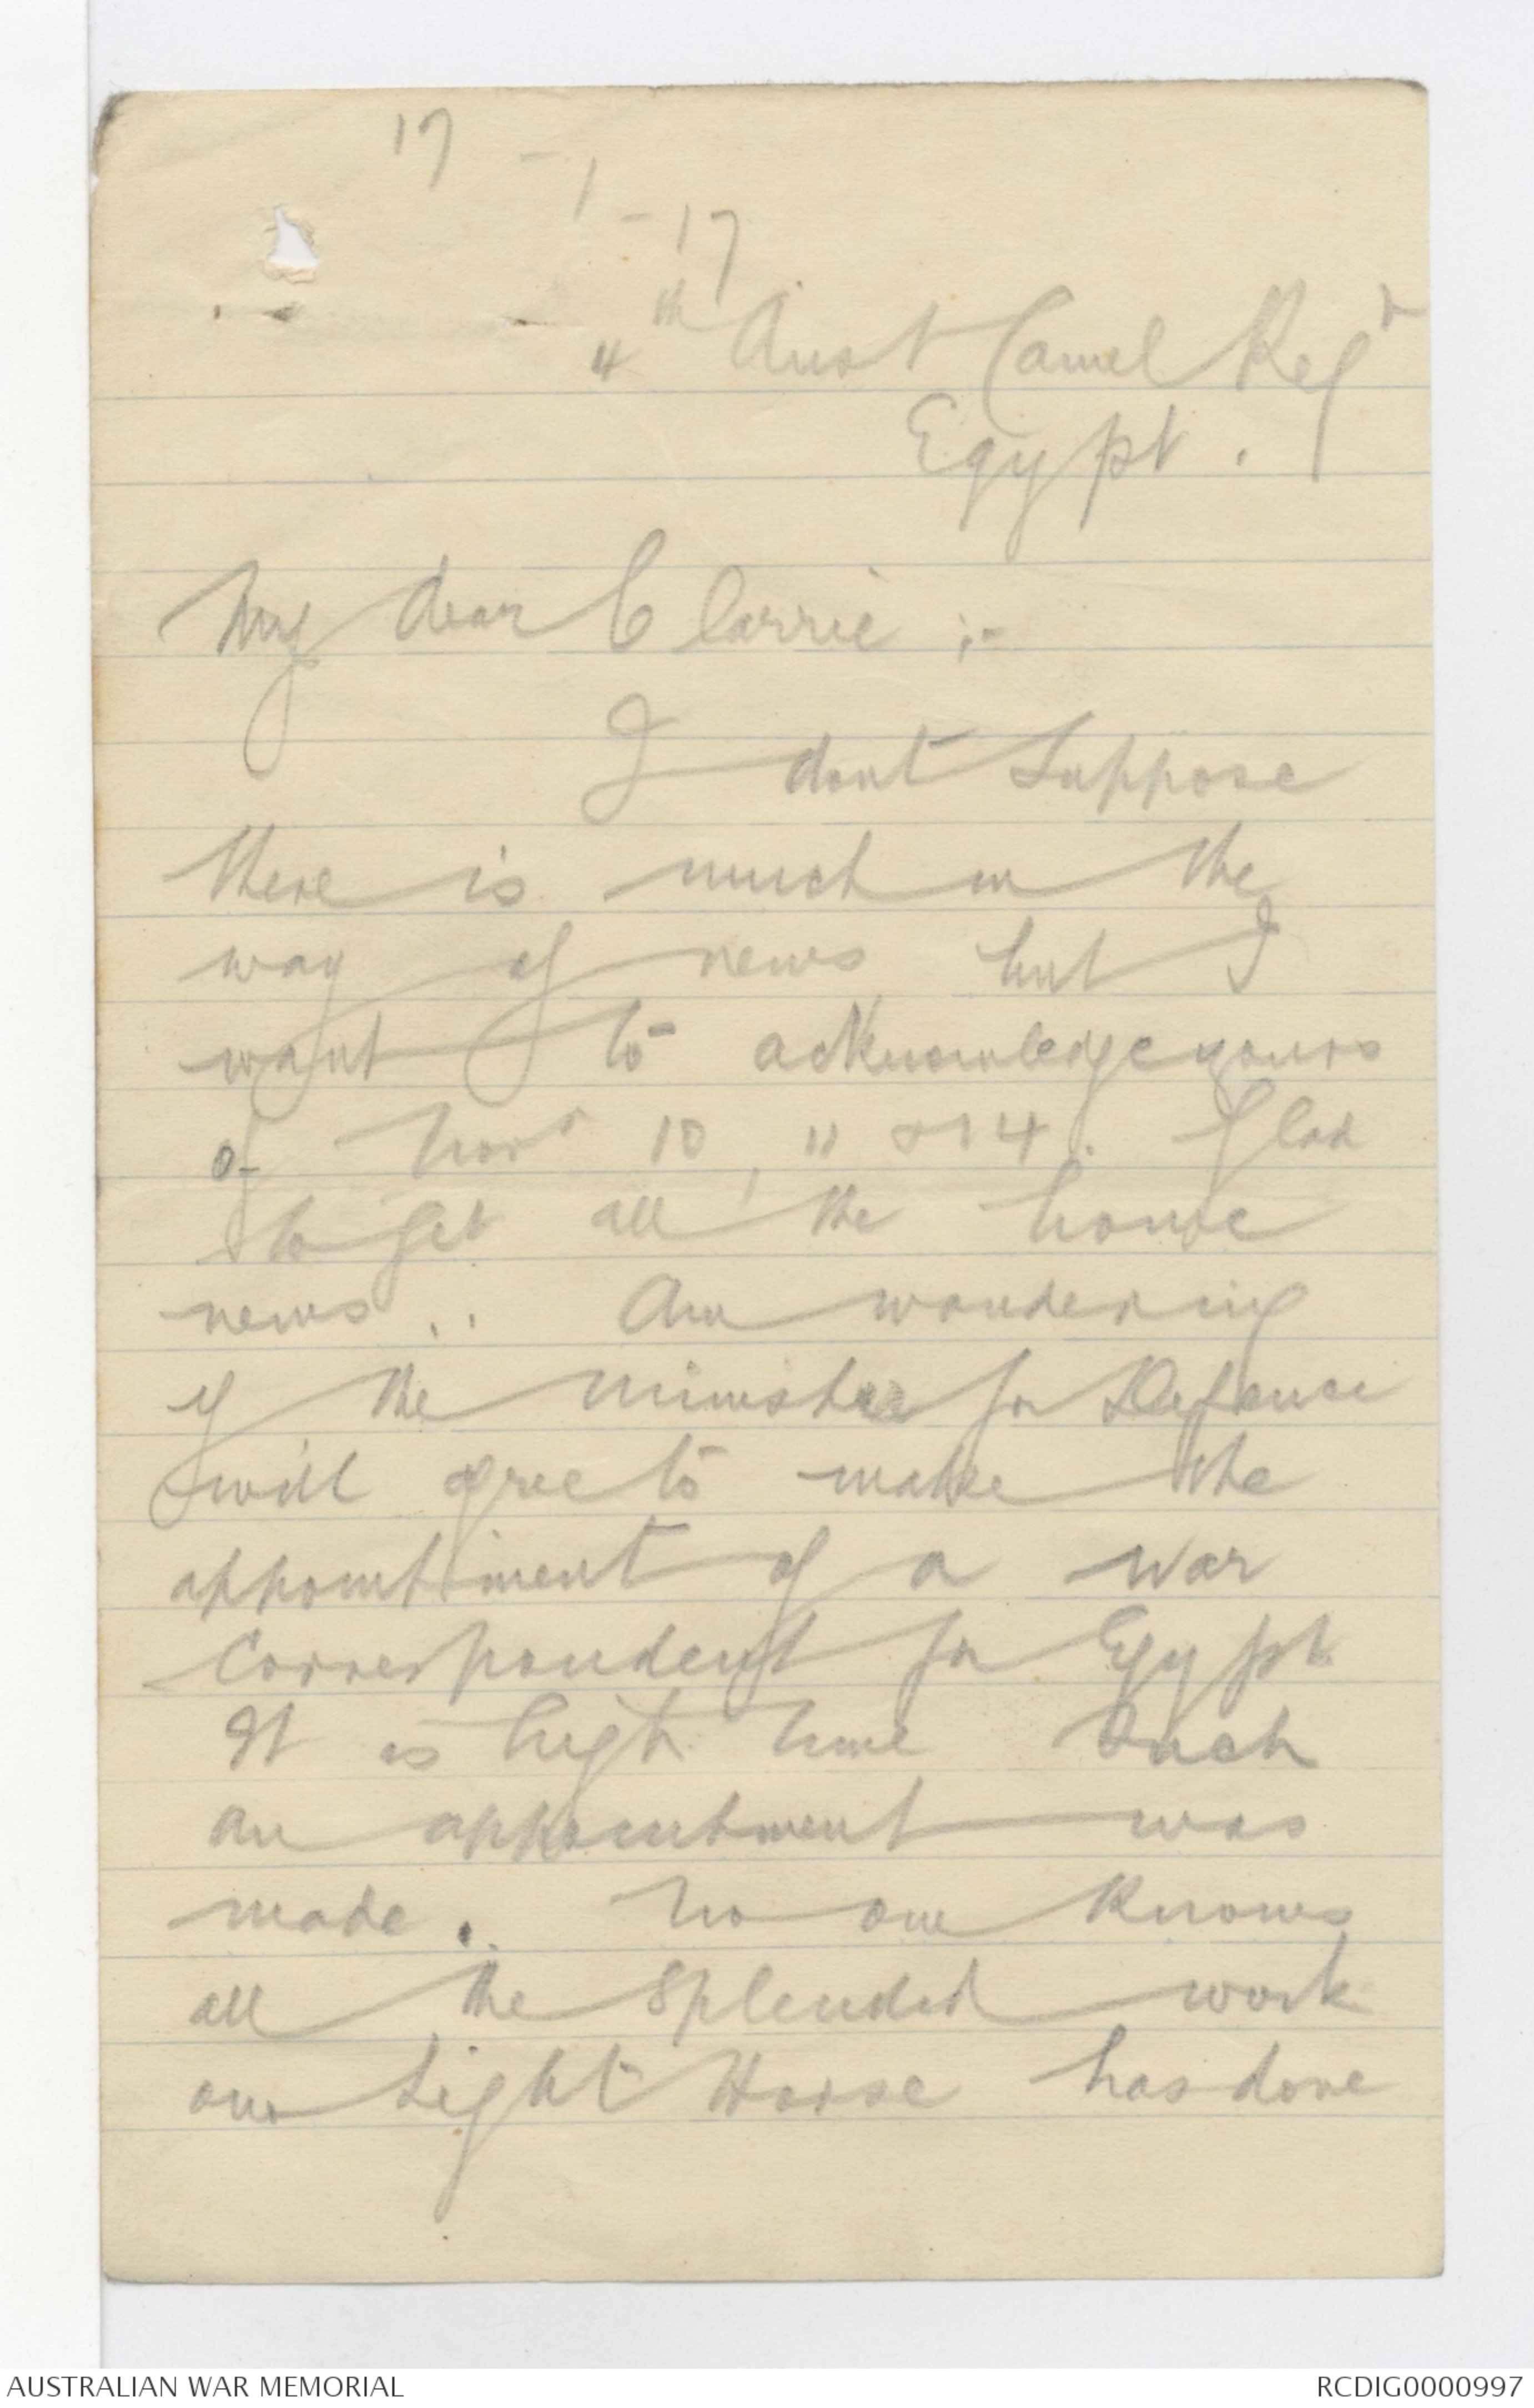 17-1-17
4th Aust Camel Regt
Egypt.
My dear Clarrie :-
I dont suppose
there is much in the
way of news but I
want to acknowledge yours
of Novr 10, 11 & 14. Glad
to get all the home
news.. Am wondering
if the minister for Defence
will agree to make the
appointment of a war
correspondent for Egypt.
It is high time such
an appointment was
made. No one knows
all the splendid work
our Light Horse has done
AUSTRALIAN WAR MEMORIAL
RCDIG0000997